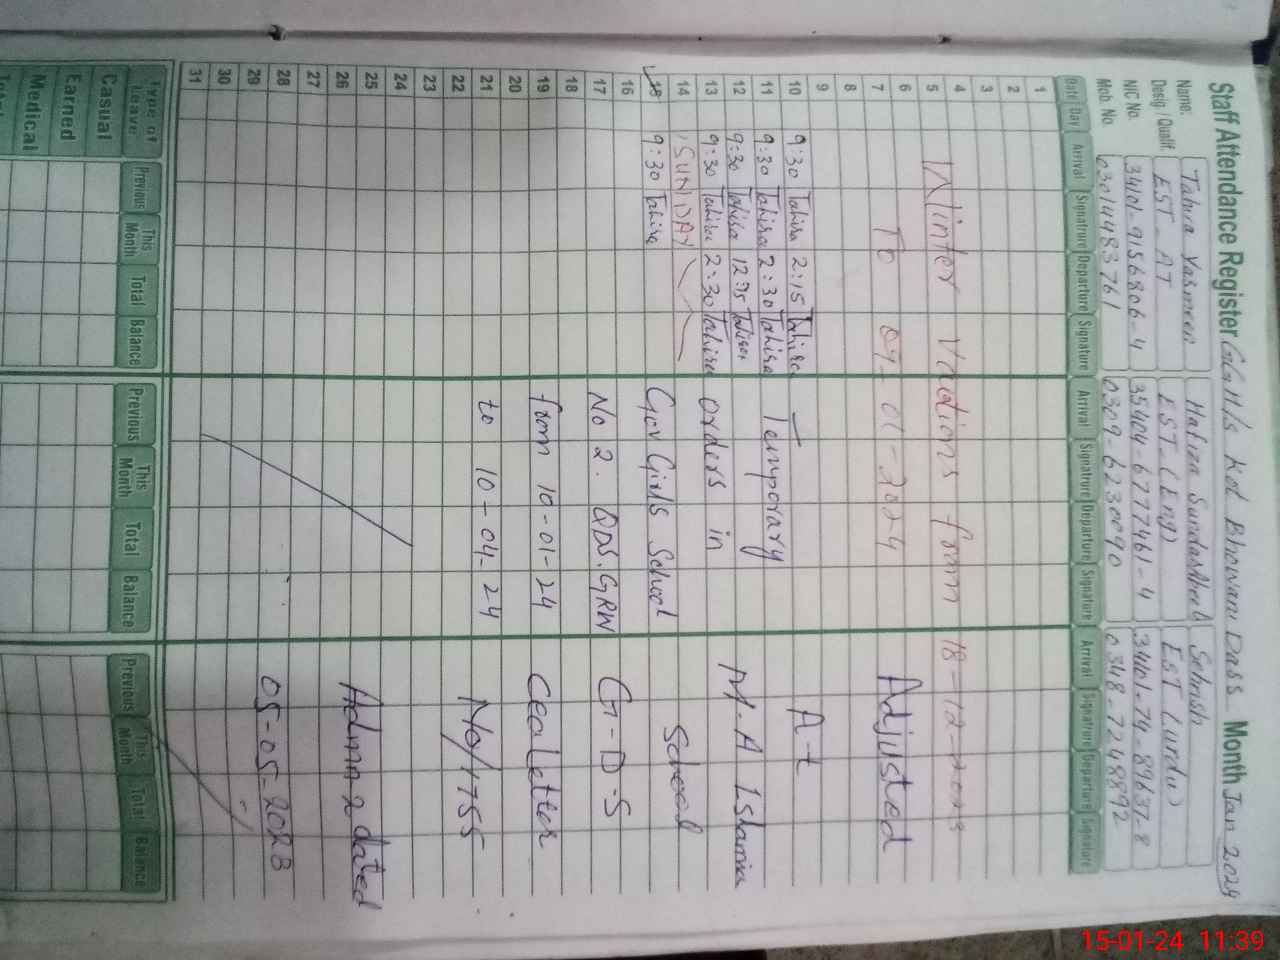 Staff Attendance Register GGHS Kot Bhawani Dass Month Jan 2024
Name: Tahira Yasmeen Hafiza Sehrish
Desig / Qualif. EST-AT EST-(Eng) EST (Urdu)
NIC No. 34101-9156806-4 35404-6777461-4 34101-74-89637-8
Mob. No. 03014483761 0309-6230090 0348-7248892
Date Day Arrival Signature Departure Signature Arrival Signature Departure Signature Arrival Signature Departure Signature
1
2
3
4
5 Winter Vactions from 18-12-2023
6
7 To 09-01-2024 Adjusted
8
9
10 9:30 Tahira 2:15 Tahira At
11 9:30 Tahira 2:30 Tahira Temporary
12 9:30 Tahira 12:15 Tahira M.A Islamia
13 9:30 Tahira 2:30 Tahira orders in
14 SUNDAY School
15 9:30 Tahira Gov Girls School
16
17 No 2. QDS.GRW G-D-S
18
19 from 10-01-24 Cealetter
20
21 to 10-04-24
22 No/1755
23
24
25
26 Admn 2 dated
27
28
29 05-05-2023
30
31
Type of Leave Previous This Month Total Balance Previous This Month Total Balance Previous This Month Total Balance
Casual
Earned
Medical
15-01-24 11:39